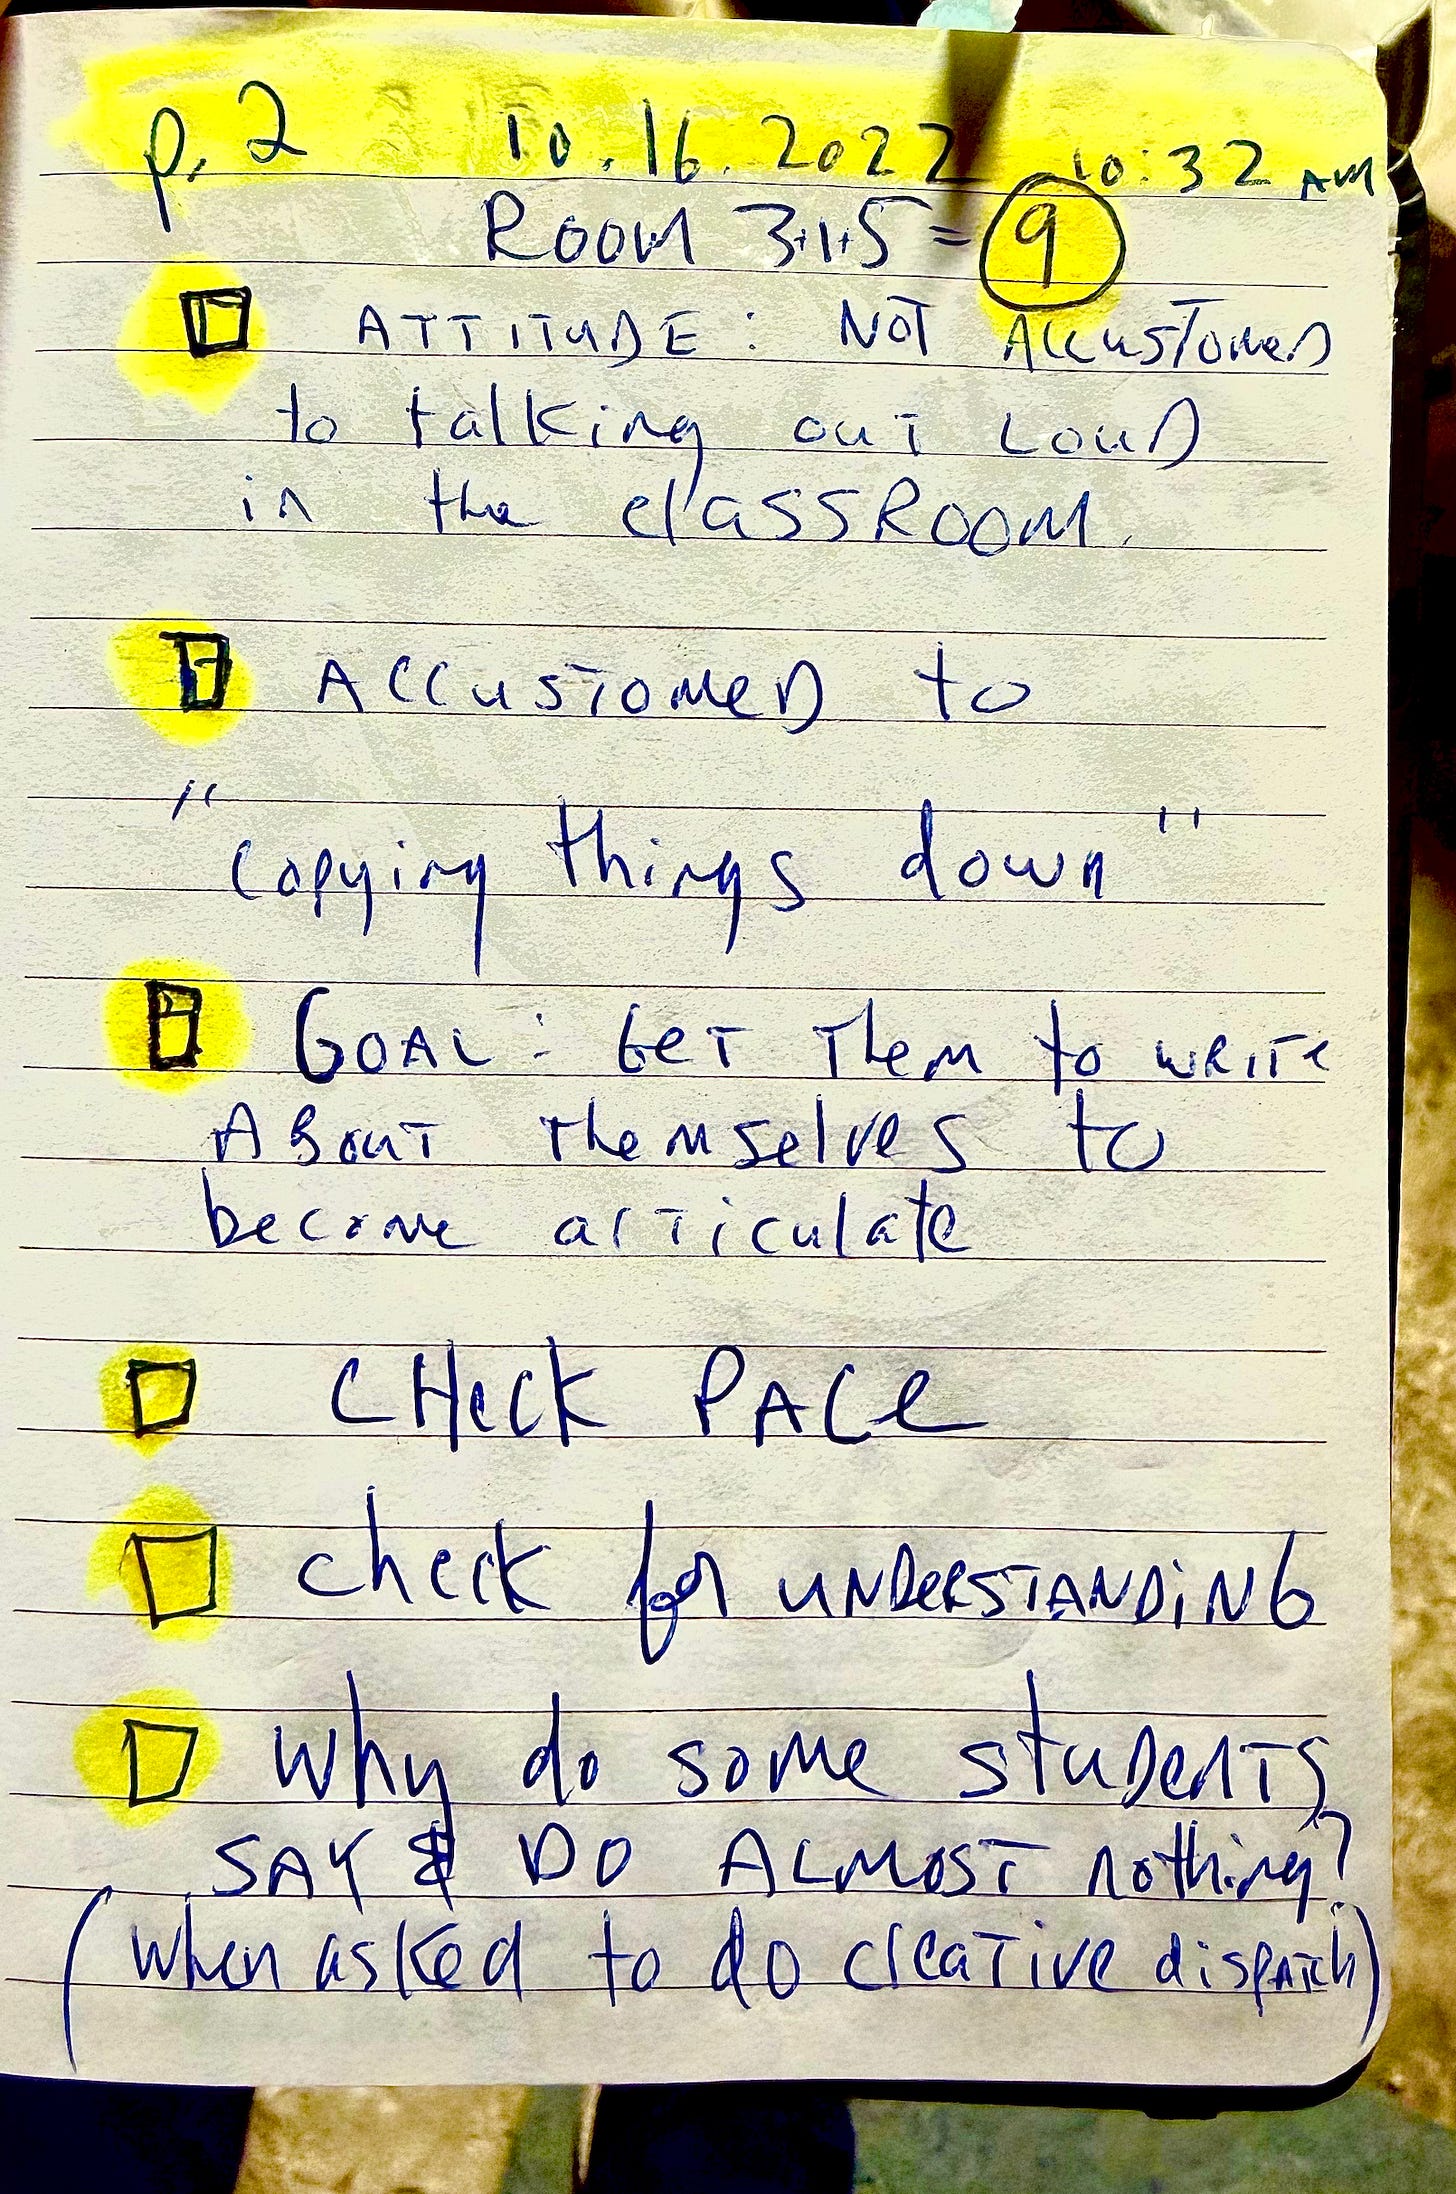 p. 2 10.16.2022 10:32 AM
ROOM 3+1+5 = 9
ATTITUDE: NOT ACCUSTOMED
to talking out LOUD
in the classROOM.
ACCUSTOMED to
"copying things down"
GOAL: GET Them to WRITE
ABOUT themselves to
become articulate
CHeck PACe
check for UNDERSTANDiNG
Why do some studenTs
SAY & DO ALMOST nothing?
(when asked to do creative dispatch)